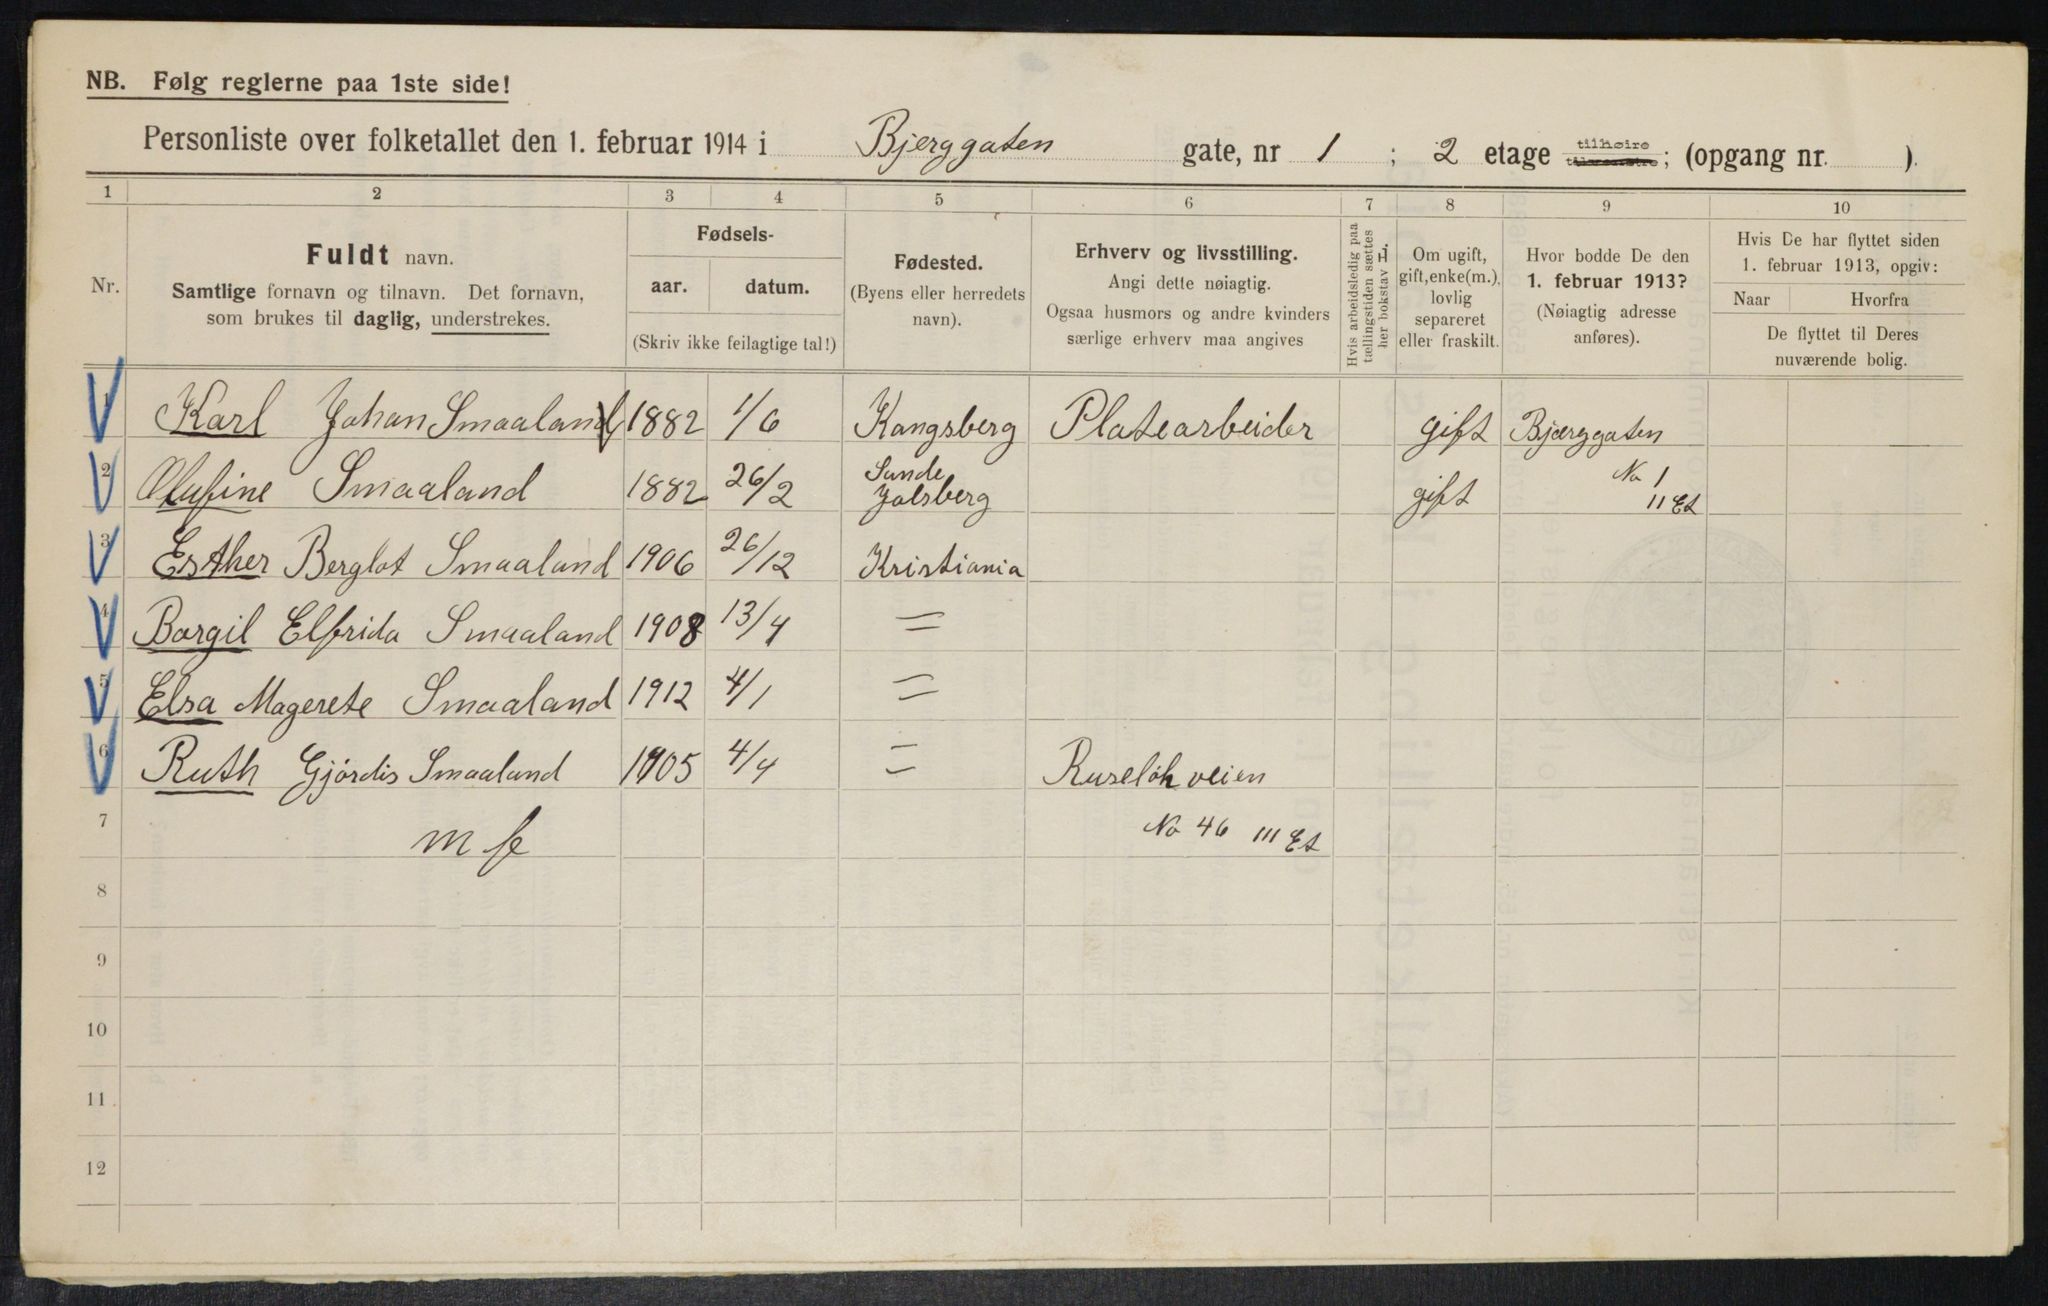 NB. Følg reglerne paa 1ste side!
Personliste over folketallet den 1. februar 1914 i Bjerggaten gate, nr 1 ; 2 etage tilhøire ; (opgang nr. ).
1 2 3 4 5 6 7 8 9 10
Nr.
Fuldt navn.
Samtlige fornavn og tilnavn. Det fornavn,
som brukes til daglig, understrekes.
Fødsels-
aar. datum.
(Skriv ikke feilagtige tal!)
Fødested.
(Byens eller herredets
navn).
Erhverv og livsstilling.
Angi dette nøiagtig.
Ogsaa husmors og andre kvinders
særlige erhverv maa angives
Hvis arbeidsledig paa
tællingstiden sættes
her bokstav L.
Om ugift,
gift, enke(m.),
lovlig
separeret
eller fraskilt.
Hvor bodde De den
1. februar 1913?
(Nøiagtig adresse
anføres).
Hvis De har flyttet siden
1. februar 1913, opgiv:
Naar Hvorfra
De flyttet til Deres
nuværende bolig.
1 Karl Johan Smaaland 1882 1/6 Kongsberg Platearbeider gift Bjærggaten
2 Olufine Smaaland 1882 26/2 Sande Jalsberg gift No 1
11 Et
3 Esther Berglot Smaaland 1906 26/12 Kristiania
4 Borgil Elfrida Smaaland 1908 13/4 =
5 Elsa Magerete Smaaland 1912 4/1 =
6 Ruth Gjördis Smaaland 1905 4/4 = Ruselök veien
7 No 46 III Et
8
9
10
11
12